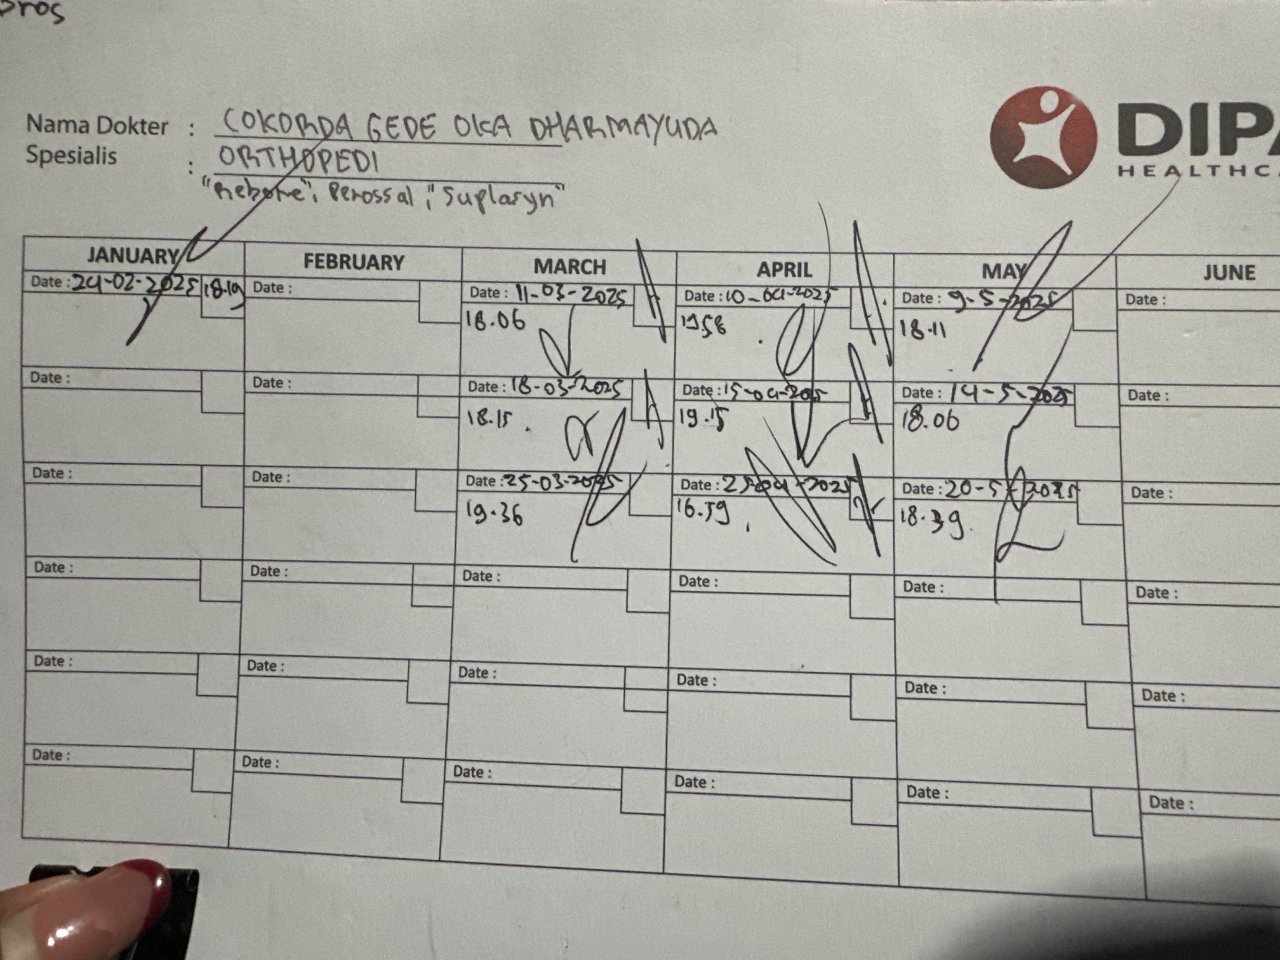 pros
Nama Dokter : COKORDA GEDE OKA DHARMAYUDA
Spesialis : ORTHOPEDI
"Rebone", Perossal, "Suplasyn"
DIPA
HEALTHCA
JANUARY FEBRUARY MARCH APRIL MAY JUNE
Date : 24-02-2025 18.19 Date : Date : 11-03-2025 Date : 10-04-2025 Date : 9-5-2025 Date :
18.06 1958 18.11
Date : Date : Date : 18-03-2025 Date : 15-04-2025 Date : 14-5-2025 Date :
18.15 19.15 18.06
Date : Date : Date : 25-03-2025 Date : 04-2025 Date : 20-5-2025 Date :
19.36 16.59 18.39
Date : Date : Date : Date : Date : Date :
Date : Date : Date : Date : Date : Date :
Date : Date : Date : Date : Date : Date :